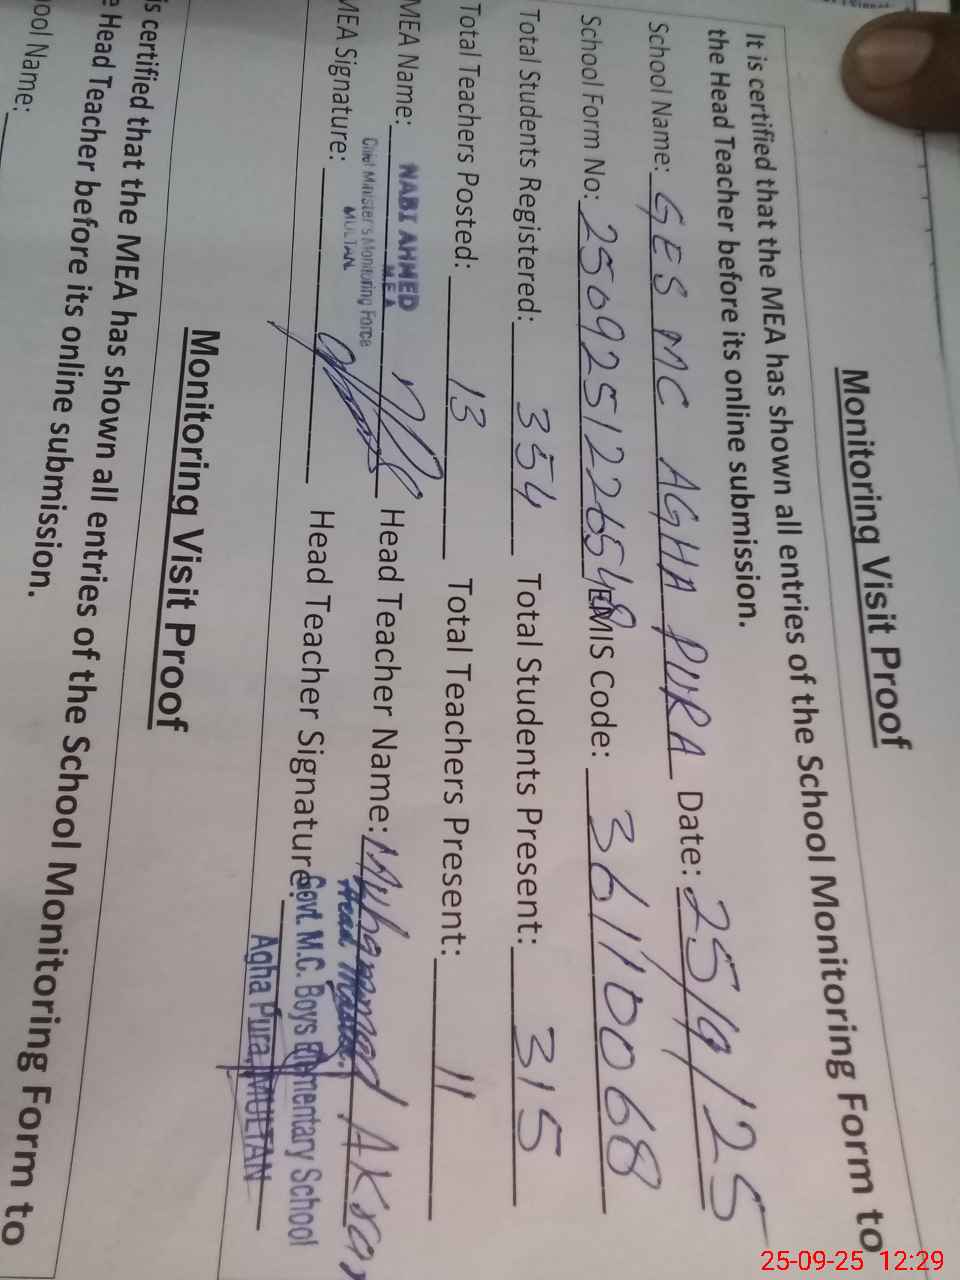 Monitoring Visit Proof
It is certified that the MEA has shown all entries of the School Monitoring Form to
the Head Teacher before its online submission.
School Name: GES MC AGHA PURA Date: 25/9/25
School Form No: EMIS Code: 36110068
Total Students Registered: 354 Total Students Present: 315
Total Teachers Posted: 13 Total Teachers Present: 11
MEA Name: NABI AHMED Head Teacher Name: Muhammad Akram
MEA
Chief Minister's Monitoring Force
MULTAN
MEA Signature: Head Teacher Signature:
Head Master.
Govt. M.C. Boys Elementary School
Agha Pura, MULTAN
Monitoring Visit Proof
is certified that the MEA has shown all entries of the School Monitoring Form to
e Head Teacher before its online submission.
ool Name:
25-09-25 12:29